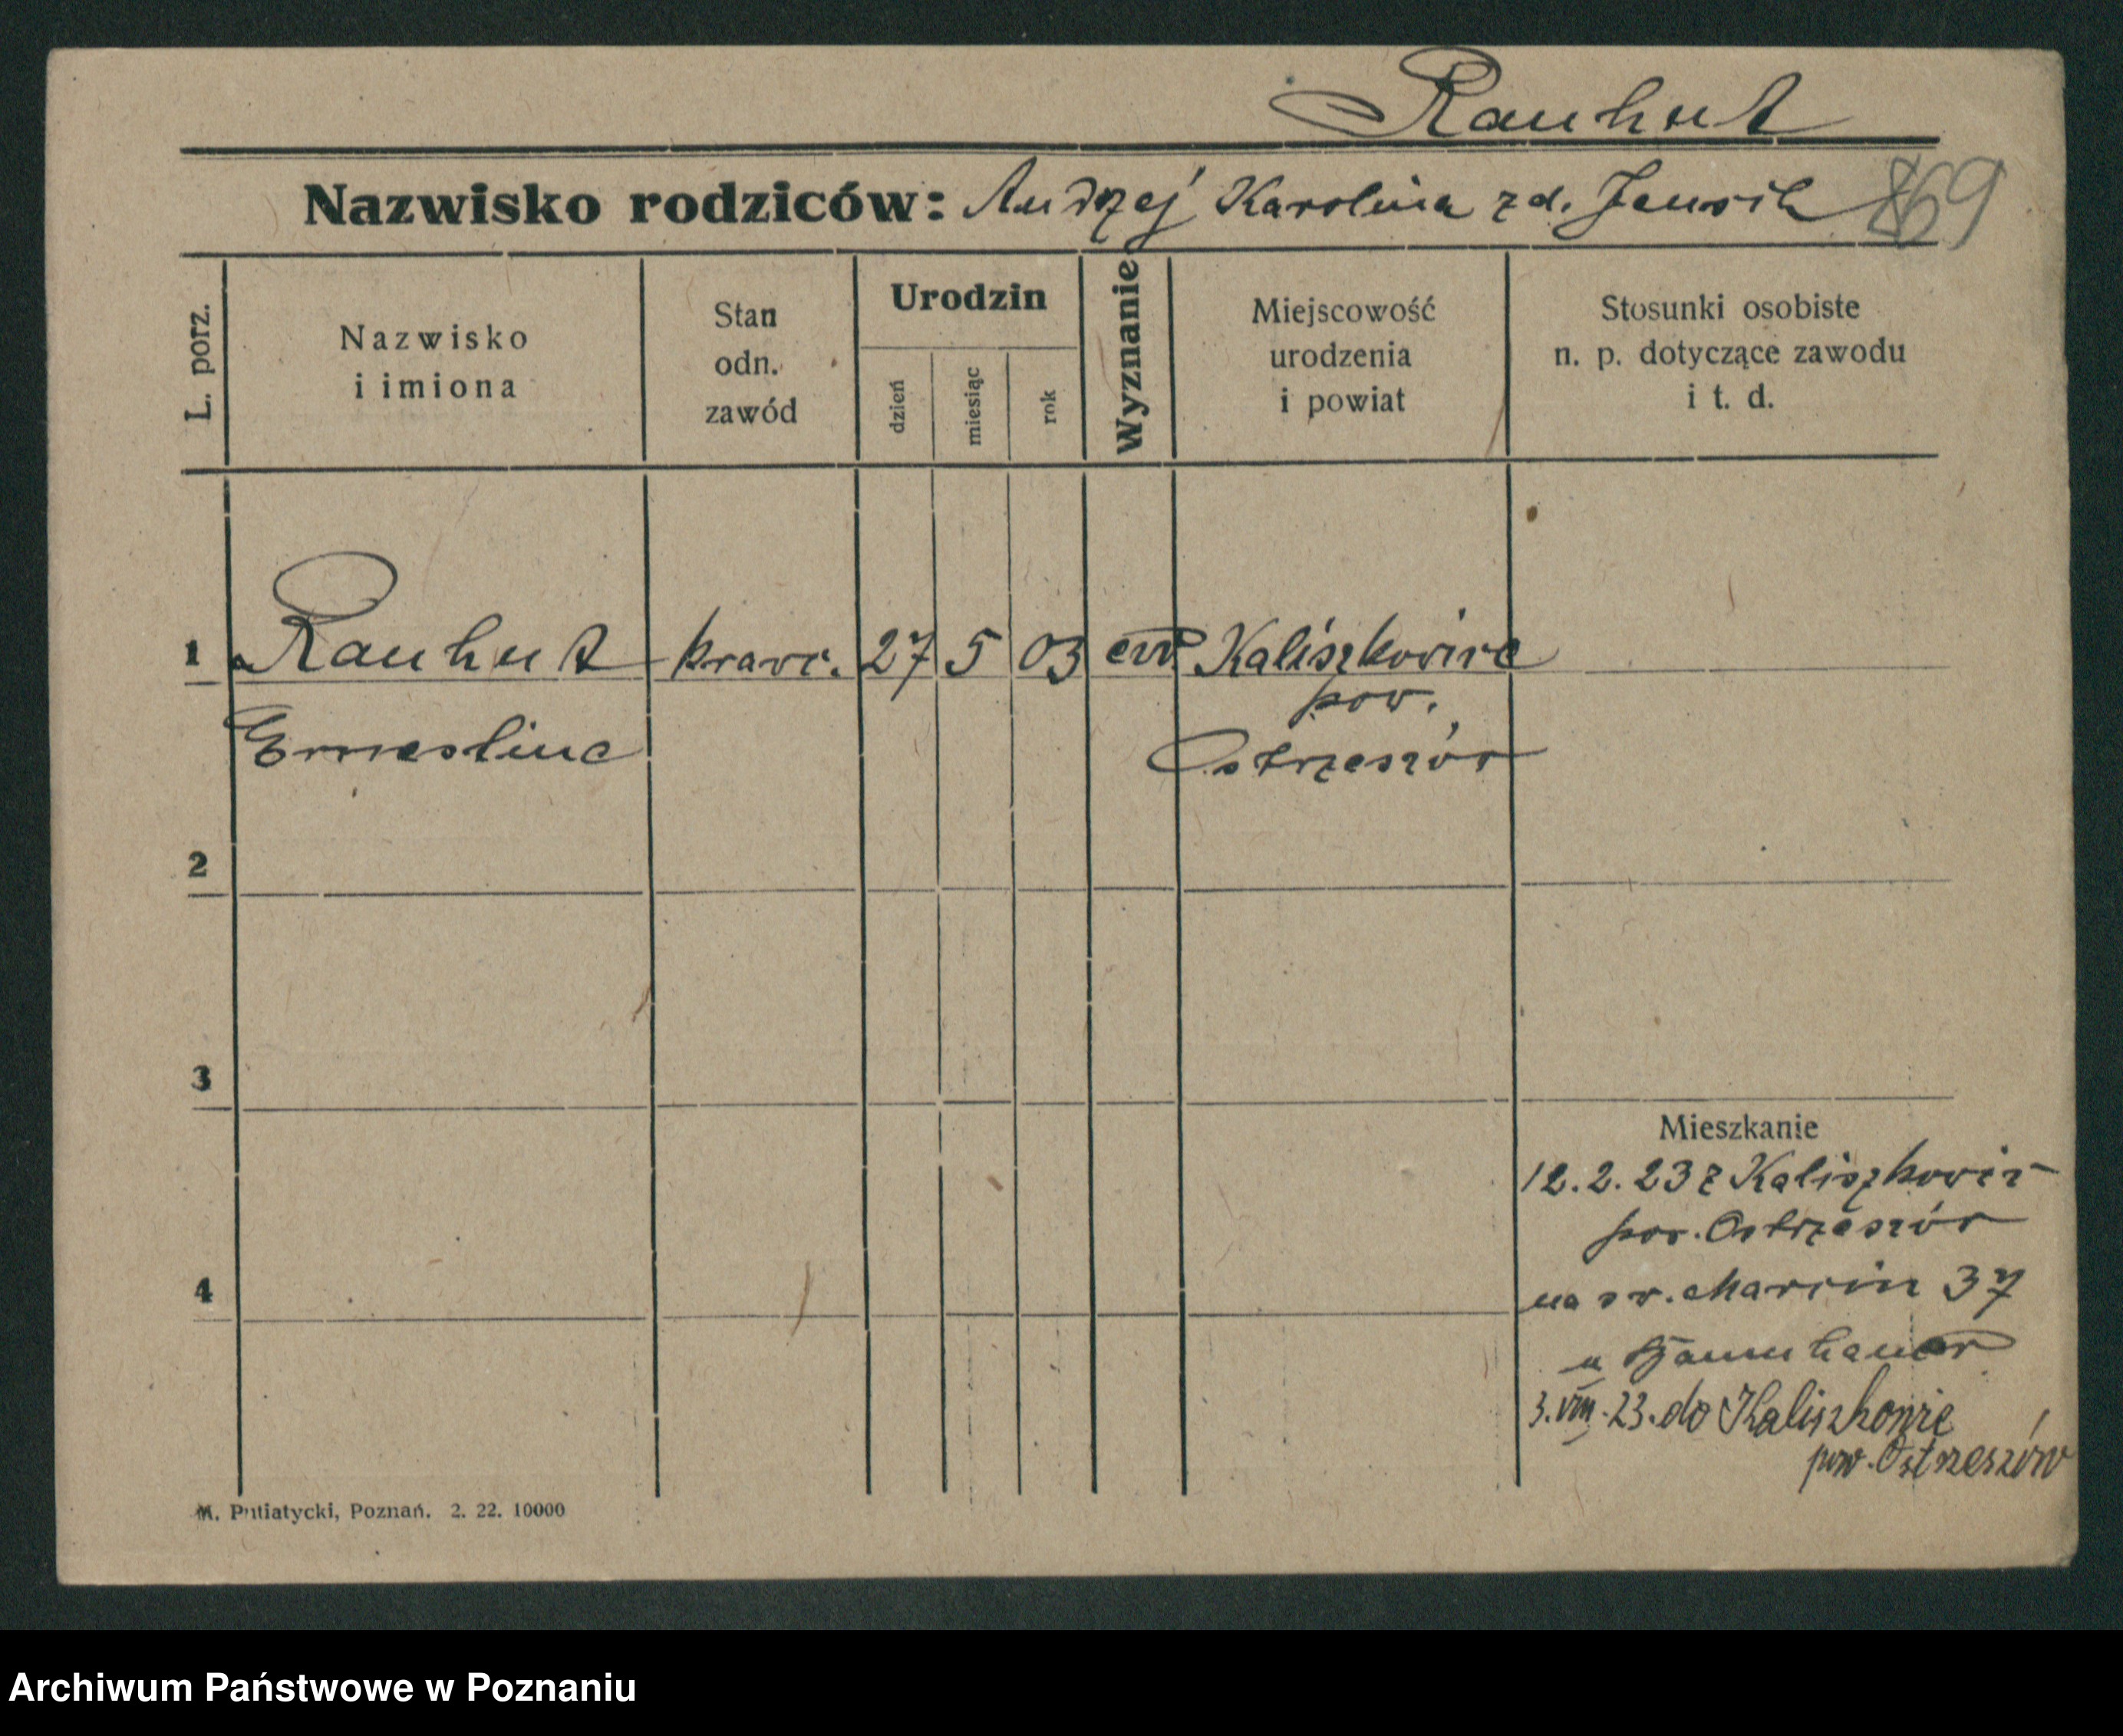 Rauhut
Nazwisko rodziców: Andrzej Karolina z d.
869
L. porz.
Nazwisko
i imiona
Stan
odn.
zawód
Urodzin
dzień
miesiąc
rok
Wyznanie
Miejscowość
urodzenia
i powiat
Stosunki osobiste
n. p. dotyczące zawodu
i t. d.
1 Rauhut krawc. 27 5 03 ew Kaliszkowice
pow.
Ernestine Ostrzeszów
2
3
Mieszkanie
12.2.23 z Kaliszkowic
pow. Ostrzeszów
4
na św. Marcin 37
u
3.VIII.23. do Kaliszkowic
pow. Ostrzeszów
M. Putiatycki, Poznań. 2. 22. 10000
Archiwum Państwowe w Poznaniu